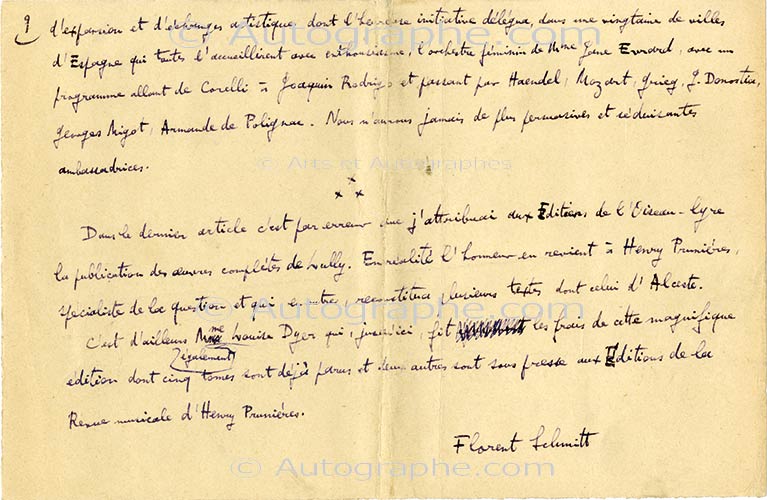 9
d'expansion et d'échanges artistique, dont l'heureuse initiative délégua, dans une vingtaine de villes
d'Espagne qui toutes l'accueillirent avec enthousiasme, l'orchestre féminin de Mme Jane Evrard, avec un
programme allant de Corelli à Joaquin Rodrigo et passant par Haendel, Mozart, Grieg, J. Donostia,
Georges Migot, Armande de Polignac. Nous n'aurons jamais de plus persuasives et séduisantes
ambassadrices.
© Arts et Autographes
x x x
Dans le dernier article c'est par erreur que j'attribuai aux Editions de l'Oiseau-lyre
la publication des œuvres complètes de Lully. En réalité l'honneur en revient à Henry Prunières,
spécialiste de la question et qui, en outre, reconstitua plusieurs textes dont celui d'Alceste.
C'est d'ailleurs Mme Louise Dyer qui, jusqu'ici, fit également les frais de cette magnifique
édition dont cinq tomes sont déjà parus et deux autres sont sous presse aux Editions de la
Revue musicale d'Henry Prunières.
Florent Schmitt
© Autographe.com
© Autographe.com
© Autographe.com